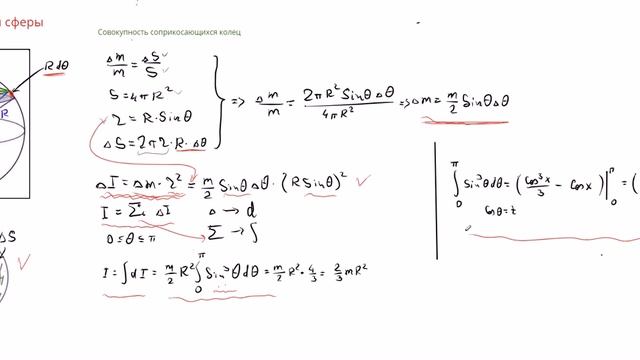 сферы
Совокупность соприкасающихся колец
R dθ
R
ΔS
Δm/m = ΔS/S
S = 4πR²
r = R·Sinθ
ΔS = 2πr·R·Δθ
=> Δm/m = 2πR² Sinθ Δθ / 4πR² => Δm = m/2 Sinθ Δθ
ΔI = Δm·r² = m/2 Sinθ Δθ·(R Sinθ)²
I = Σ ΔI
Δ → d
0 ≤ θ ≤ π
Σ → ∫
I = ∫dI = m/2 R² ∫₀^π Sin³θ dθ = m/2 R²·4/3 = 2/3 mR²
∫₀^π Sin³θ dθ = (Cos³x/3 − Cosx)|₀^π = (
Cosθ = t